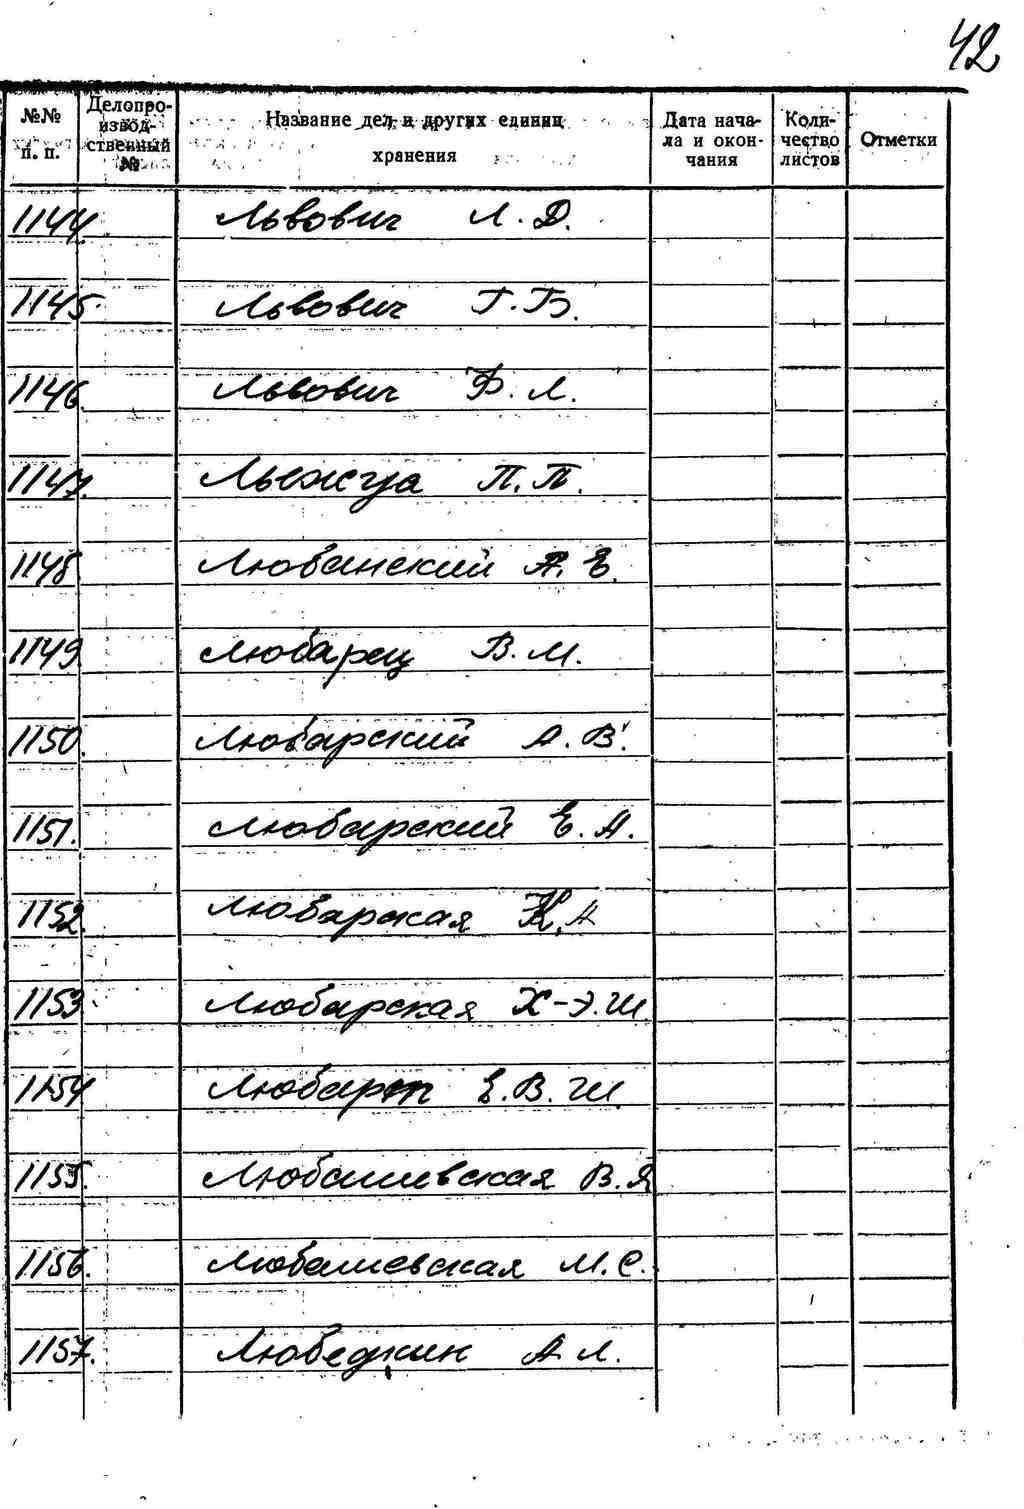 42
№№ п. п. Делопроизводственный № Название дел и других единиц хранения Дата начала и окончания Количество листов Отметки
1144. Львович Л. Д.
1145. Львович Г. Б.
1146. Львович Ф. Л.
1147. П. П.
1148. Любанский А. Е.
1149. Любарец В. М.
1150. Любарский А. В.
1151. Любарский Е. А.
1152. Любарская К. А
1153. Любарская Х-Э. Ш.
1154 Любарт Е. В. Ш.
1155. Любашевская В. Я
1156. Любашевская М. С.
1157. А. Л.